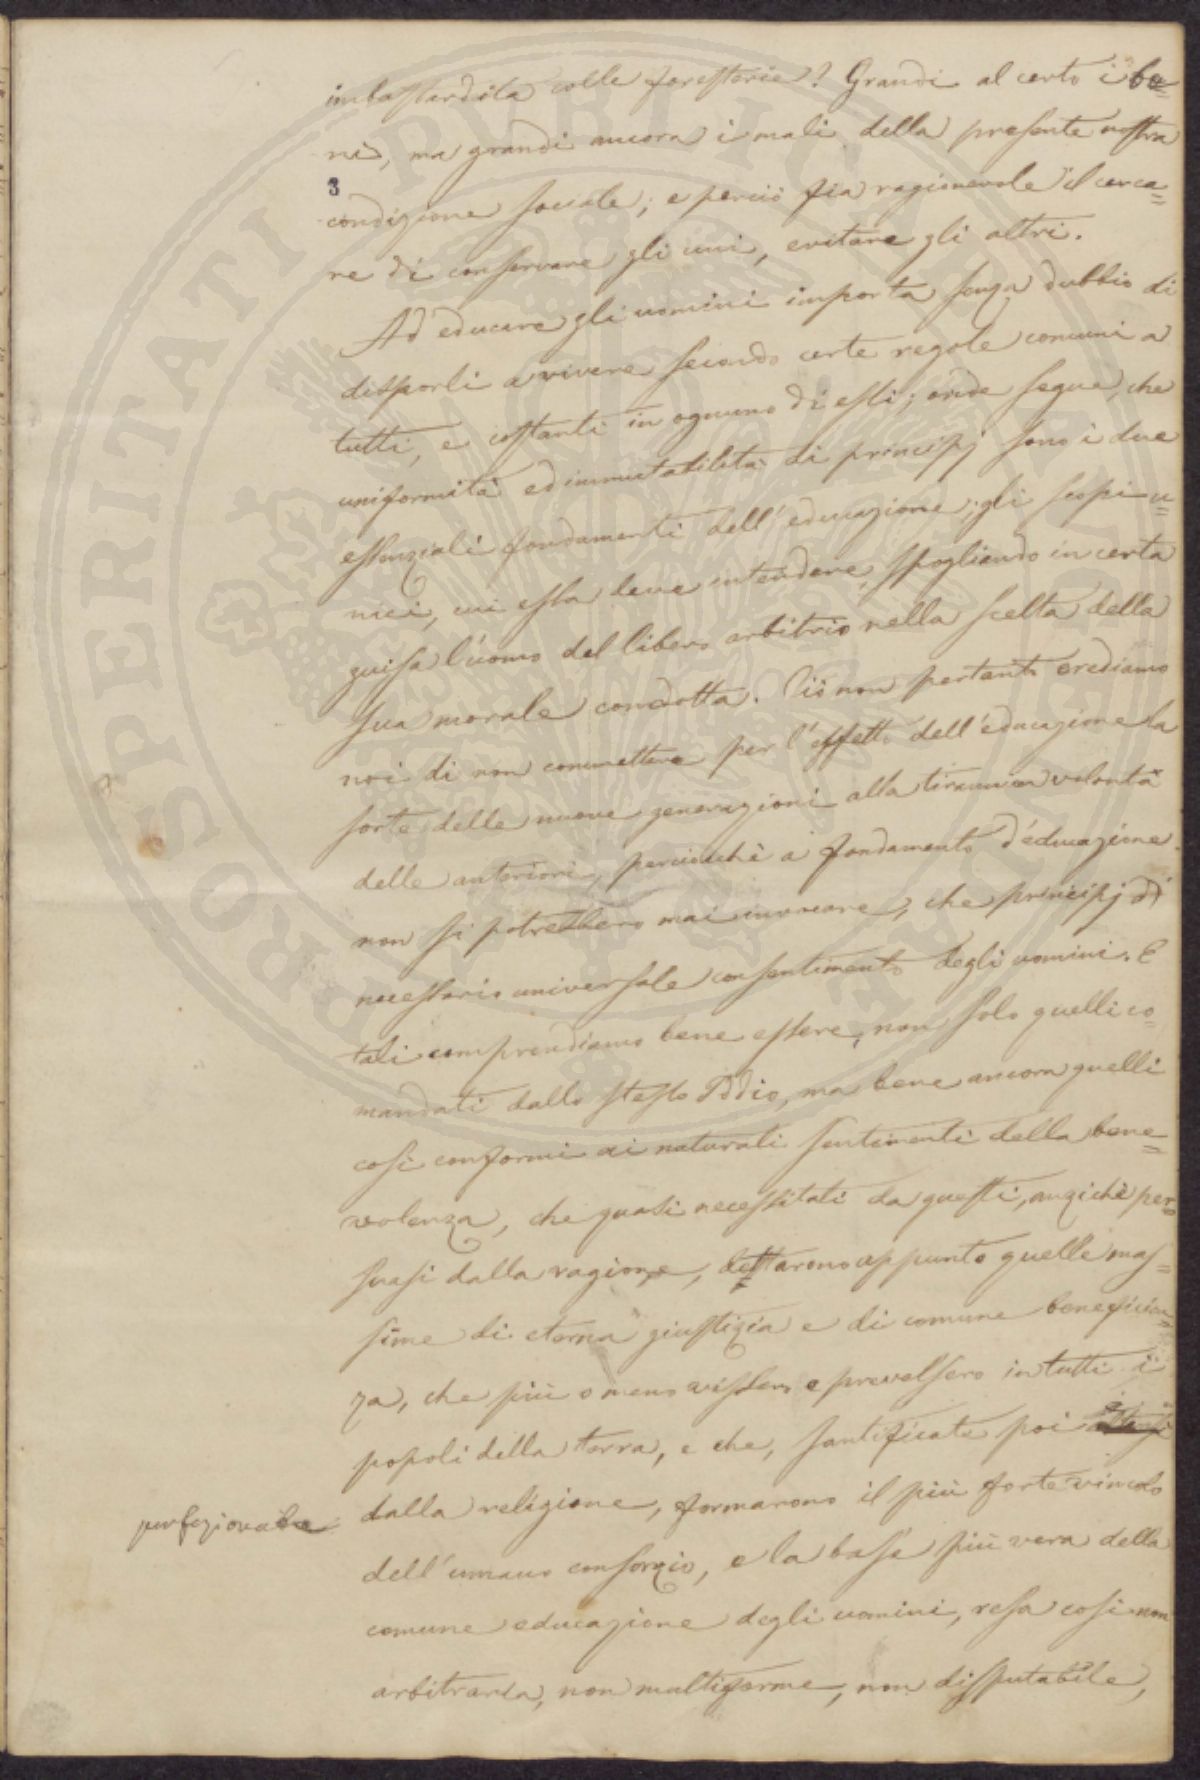 imbastardita colle foresterie? Grandi al certo i be=
ni, ma grandi ancora i mali della presente nostra
3
condizione sociale; e perciò fia ragionevole il cerca=
re di conservare gli uni, evitare gli altri.
Ad educare gli uomini importa senza dubbio di
disporli a vivere secondo certe regole comuni a
tutti, e costanti in ognuno di essi; onde segue, che
uniformità ed immutabilità di principj sono i due
essenziali fondamenti dell'educazione; gli scopi u=
nici, cui essa deve intendere, spogliando in certa
guisa l'uomo del libero arbitrio nella scelta della
sua morale condotta. Ciò non pertanto crediamo
noi di non commettere per l'effetto dell'educazione la
sorte delle nuove generazioni alla tirannica volontà
delle anteriori, perciocchè a fondamento d'educazione
non si potrebbero mai invocare, che principj di
necessario universale consentimento degli uomini. E
tali comprendiamo bene essere, non solo quelli co=
mandati dallo stesso Iddio, ma bene ancora quelli
così conformi ai naturali sentimenti della bene=
volenza, che quasi necessitati da questi, anzichè per=
suasi dalla ragione, dettarono appunto quelle mas=
sime di eterna giustizia e di comune beneficien=
za, che più o meno vissero e prevalsero in tutti i
popoli della terra, e che, santificate poi
dalla religione, formarono il più forte vincolo
perfezionabile
dell'umano consorzio, e la base più vera della
comune educazione degli uomini, resa così non
arbitraria, non multiforme, non disputabile,
PROSPERITATI PUBLICAE AUGENDAE